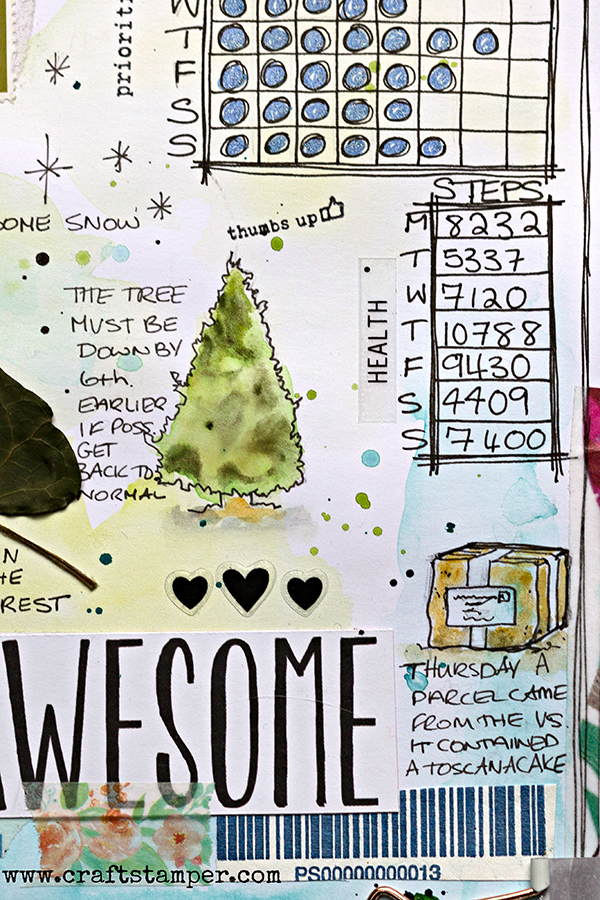 priorit
W
T
F
S
S
STEPS
M 8232
T 5337
W 7120
T 10788
F 9430
S 4409
S 7400
HEALTH
SOME SNOW
thumbs up
THE TREE
MUST BE
DOWN BY
6th.
EARLIER
IF POSS.
GET
BACK TO
NORMAL
IN
THE
REST
AWESOME
THURSDAY A
PARCEL CAME
FROM THE VS.
IT CONTAINED
A TOSCANACAKE
PS00000000013
www.craftstamper.com